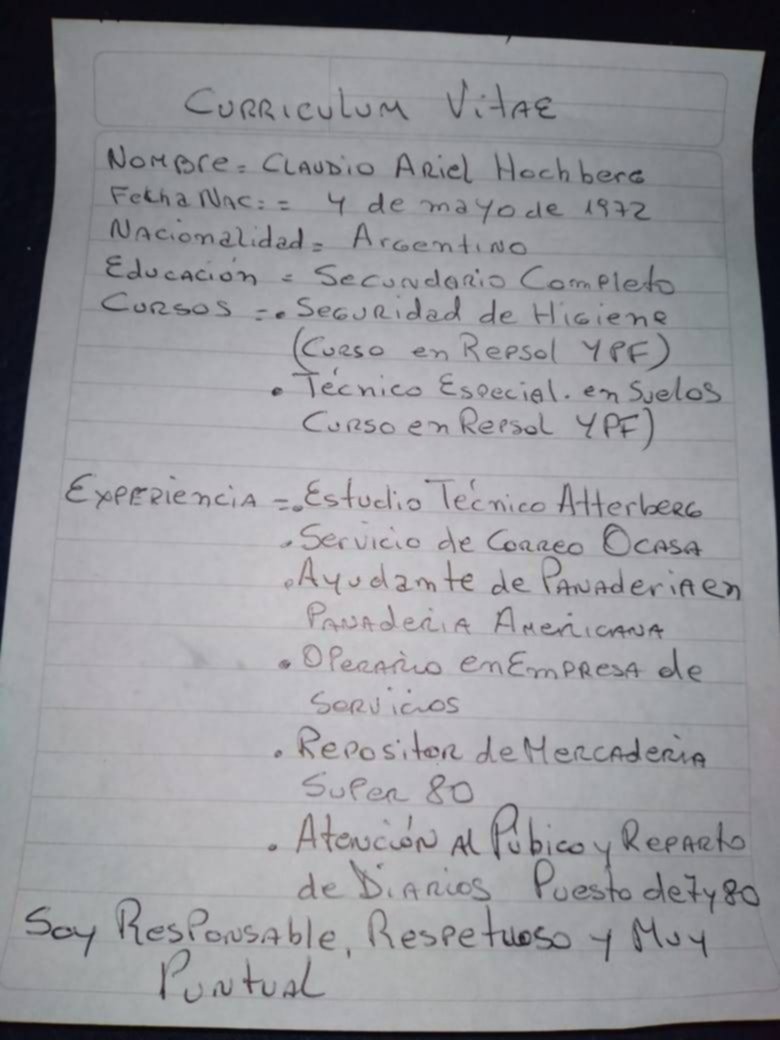 Curriculum Vitae
Nombre = Claudio Ariel Hochberg
Fecha Nac: = 4 de mayo de 1972
Nacionalidad = Argentino
Educación = Secundario Completo
Cursos = • Seguridad de Higiene
(Curso en Repsol YPF)
• Técnico Especial. en Suelos
Curso en Repsol YPF)
Experiencia = • Estudio Técnico Atterberg
• Servicio de Correo Ocasa
• Ayudante de Panaderia en
Panaderia Americana
• Operario en Empresa de
Servicios
• Repositor de Mercaderia
Super 80
• Atención Al Púbico y Reparto
de Diarios Puesto de 7 y 80
Soy Responsable, Respetuoso y Muy
Puntual